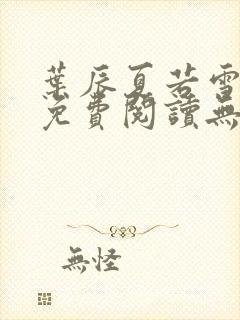 葉辰夏若雪
免費閱讀無
無怪